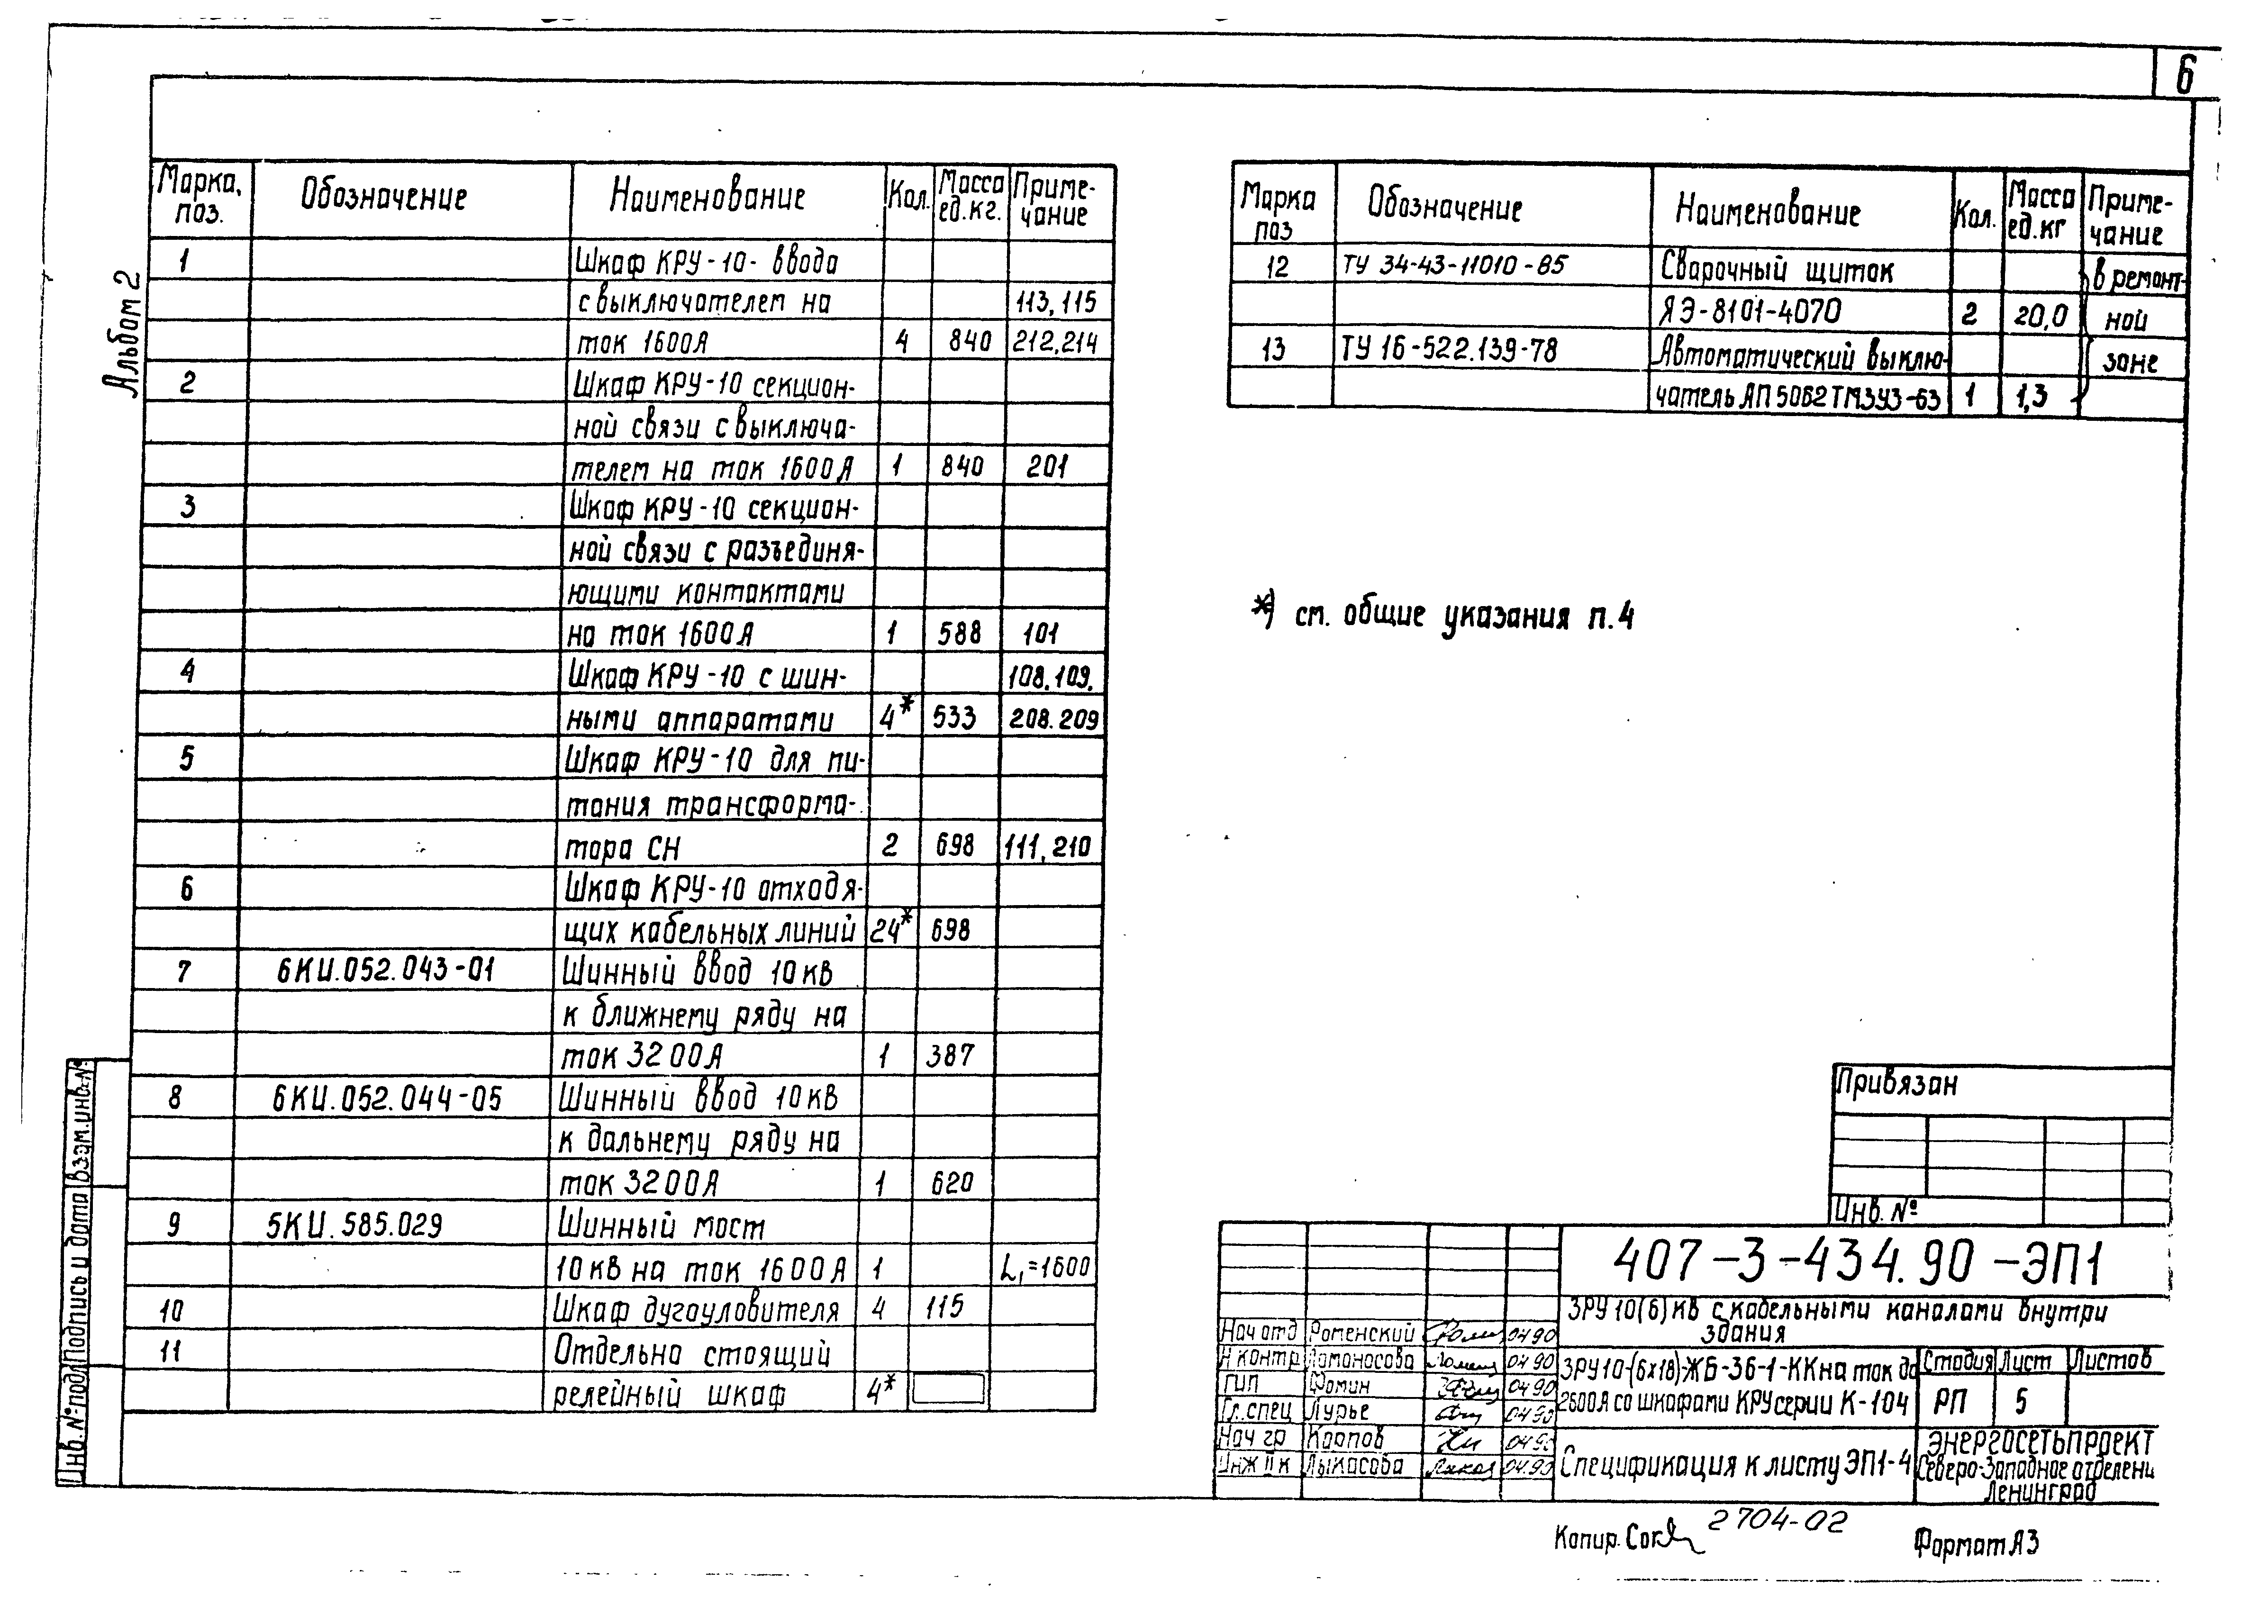 6
Альбом 2
Марка, поз. Обозначение Наименование Кол. Масса ед.кг. Примечание
1 Шкаф КРУ-10- ввода
с выключателем на 113, 115
ток 1600А 4 840 212, 214
2 Шкаф КРУ-10 секцион-
ной связи с выключа-
телем на ток 1600А 1 840 201
3 Шкаф КРУ-10 секцион-
ной связи с разъединя-
ющими контактами
на ток 1600А 1 588 101
4 Шкаф КРУ-10 с шин- 108, 109,
ными аппаратами 4* 533 208. 209
5 Шкаф КРУ-10 для пи-
тания трансформа-
тора СН 2 698 111, 210
6 Шкаф КРУ-10 отходя-
щих кабельных линий 24* 698
7 6КИ.052.043-01 Шинный ввод 10кв
к ближнему ряду на
ток 3200А 1 387
8 6КИ.052.044-05 Шинный ввод 10кв
к дальнему ряду на
ток 3200А 1 620
9 5КИ.585.029 Шинный мост
10кв на ток 1600А 1 L₁=1600
10 Шкаф дугоуловителя 4 115
11 Отдельно стоящий
релейный шкаф 4*
Марка поз Обозначение Наименование Кол. Масса ед.кг Примечание
12 ТУ 34-43-11010-85 Сварочный щиток в ремонт-
ЯЭ-8101-4070 2 20,0 ной
13 ТУ 16-522.139-78 Автоматический выклю- зоне
чатель АП50Б2ТМ3У3-63 1 1,3
*) см. общие указания п.4
Привязан
Инв. №
407-3-434.90-ЭП1
ЗРУ 10(6) кв с кабельными каналами внутри
здания
Нач отд Роменский 04 90
Н контр Ломоносова 04 90
ГИП Фомин 04 90
Гл. спец Лурье 04 90
Нач гр Карпов 04 90
Инж II к Лыкасова 04.90
ЗРУ10-(6х18)-ЖБ-36-1-КК на ток до
2600А со шкафами КРУ серии К-104
Стадия Лист Листов
РП 5
Спецификация к листу ЭП1-4
ЭНЕРГОСЕТЬПРОЕКТ
Северо-Западное отделени
Ленинград
Копир. 2704-02 Формат А3
Взам.инв.№
Подпись и дата
Инв.№подл